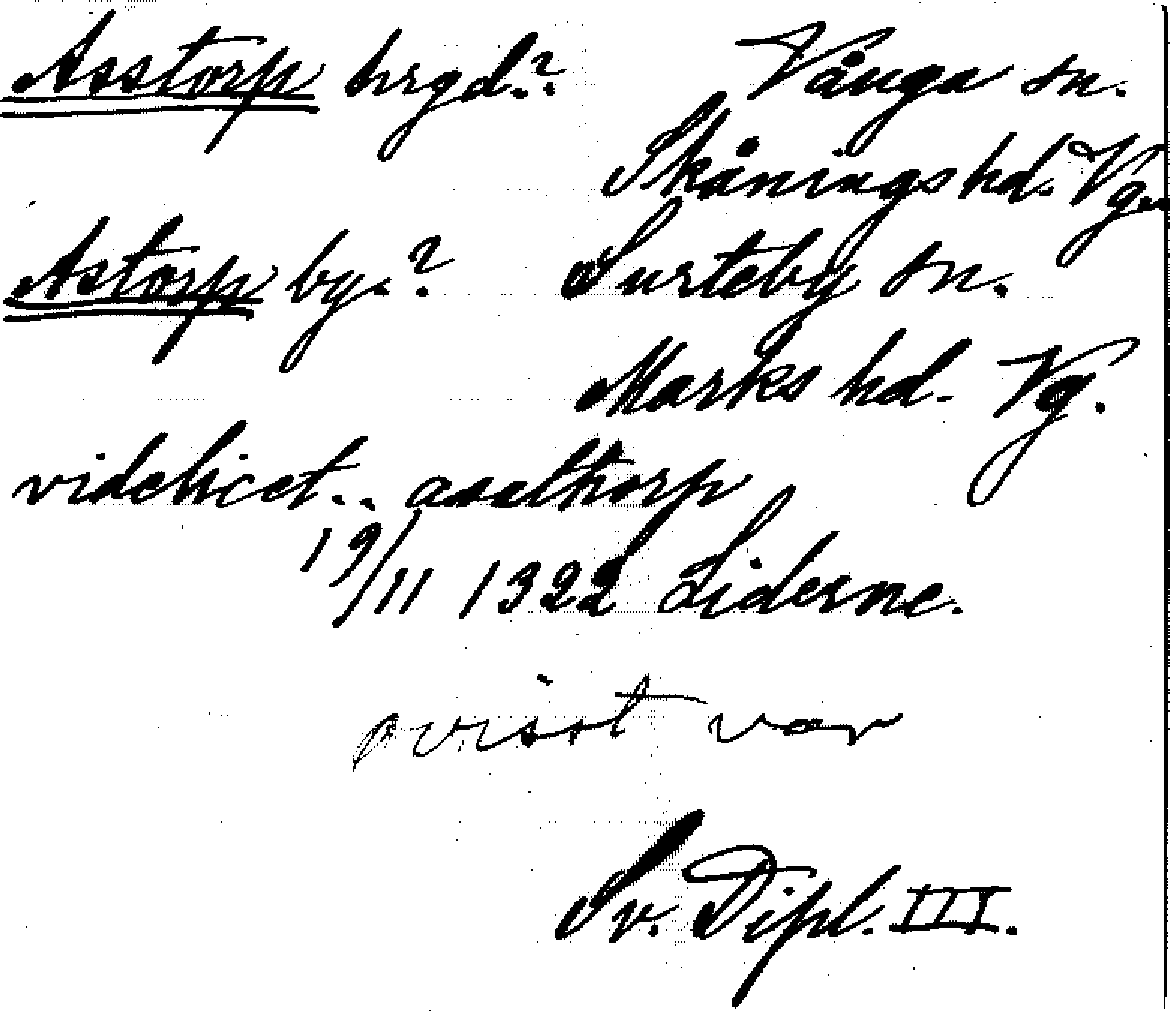 Asstorp hrgd.? Vånga sn.
Skånings hd. Vg.
Astorp by.? Surteby sn.
Marks hd. Vg.
videlicet.. aseltorp
19/11 1322 Liderne.
ovisst var
Sv. Dipl. III.